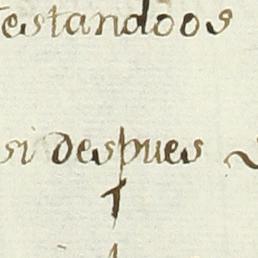 estandoos
si despues